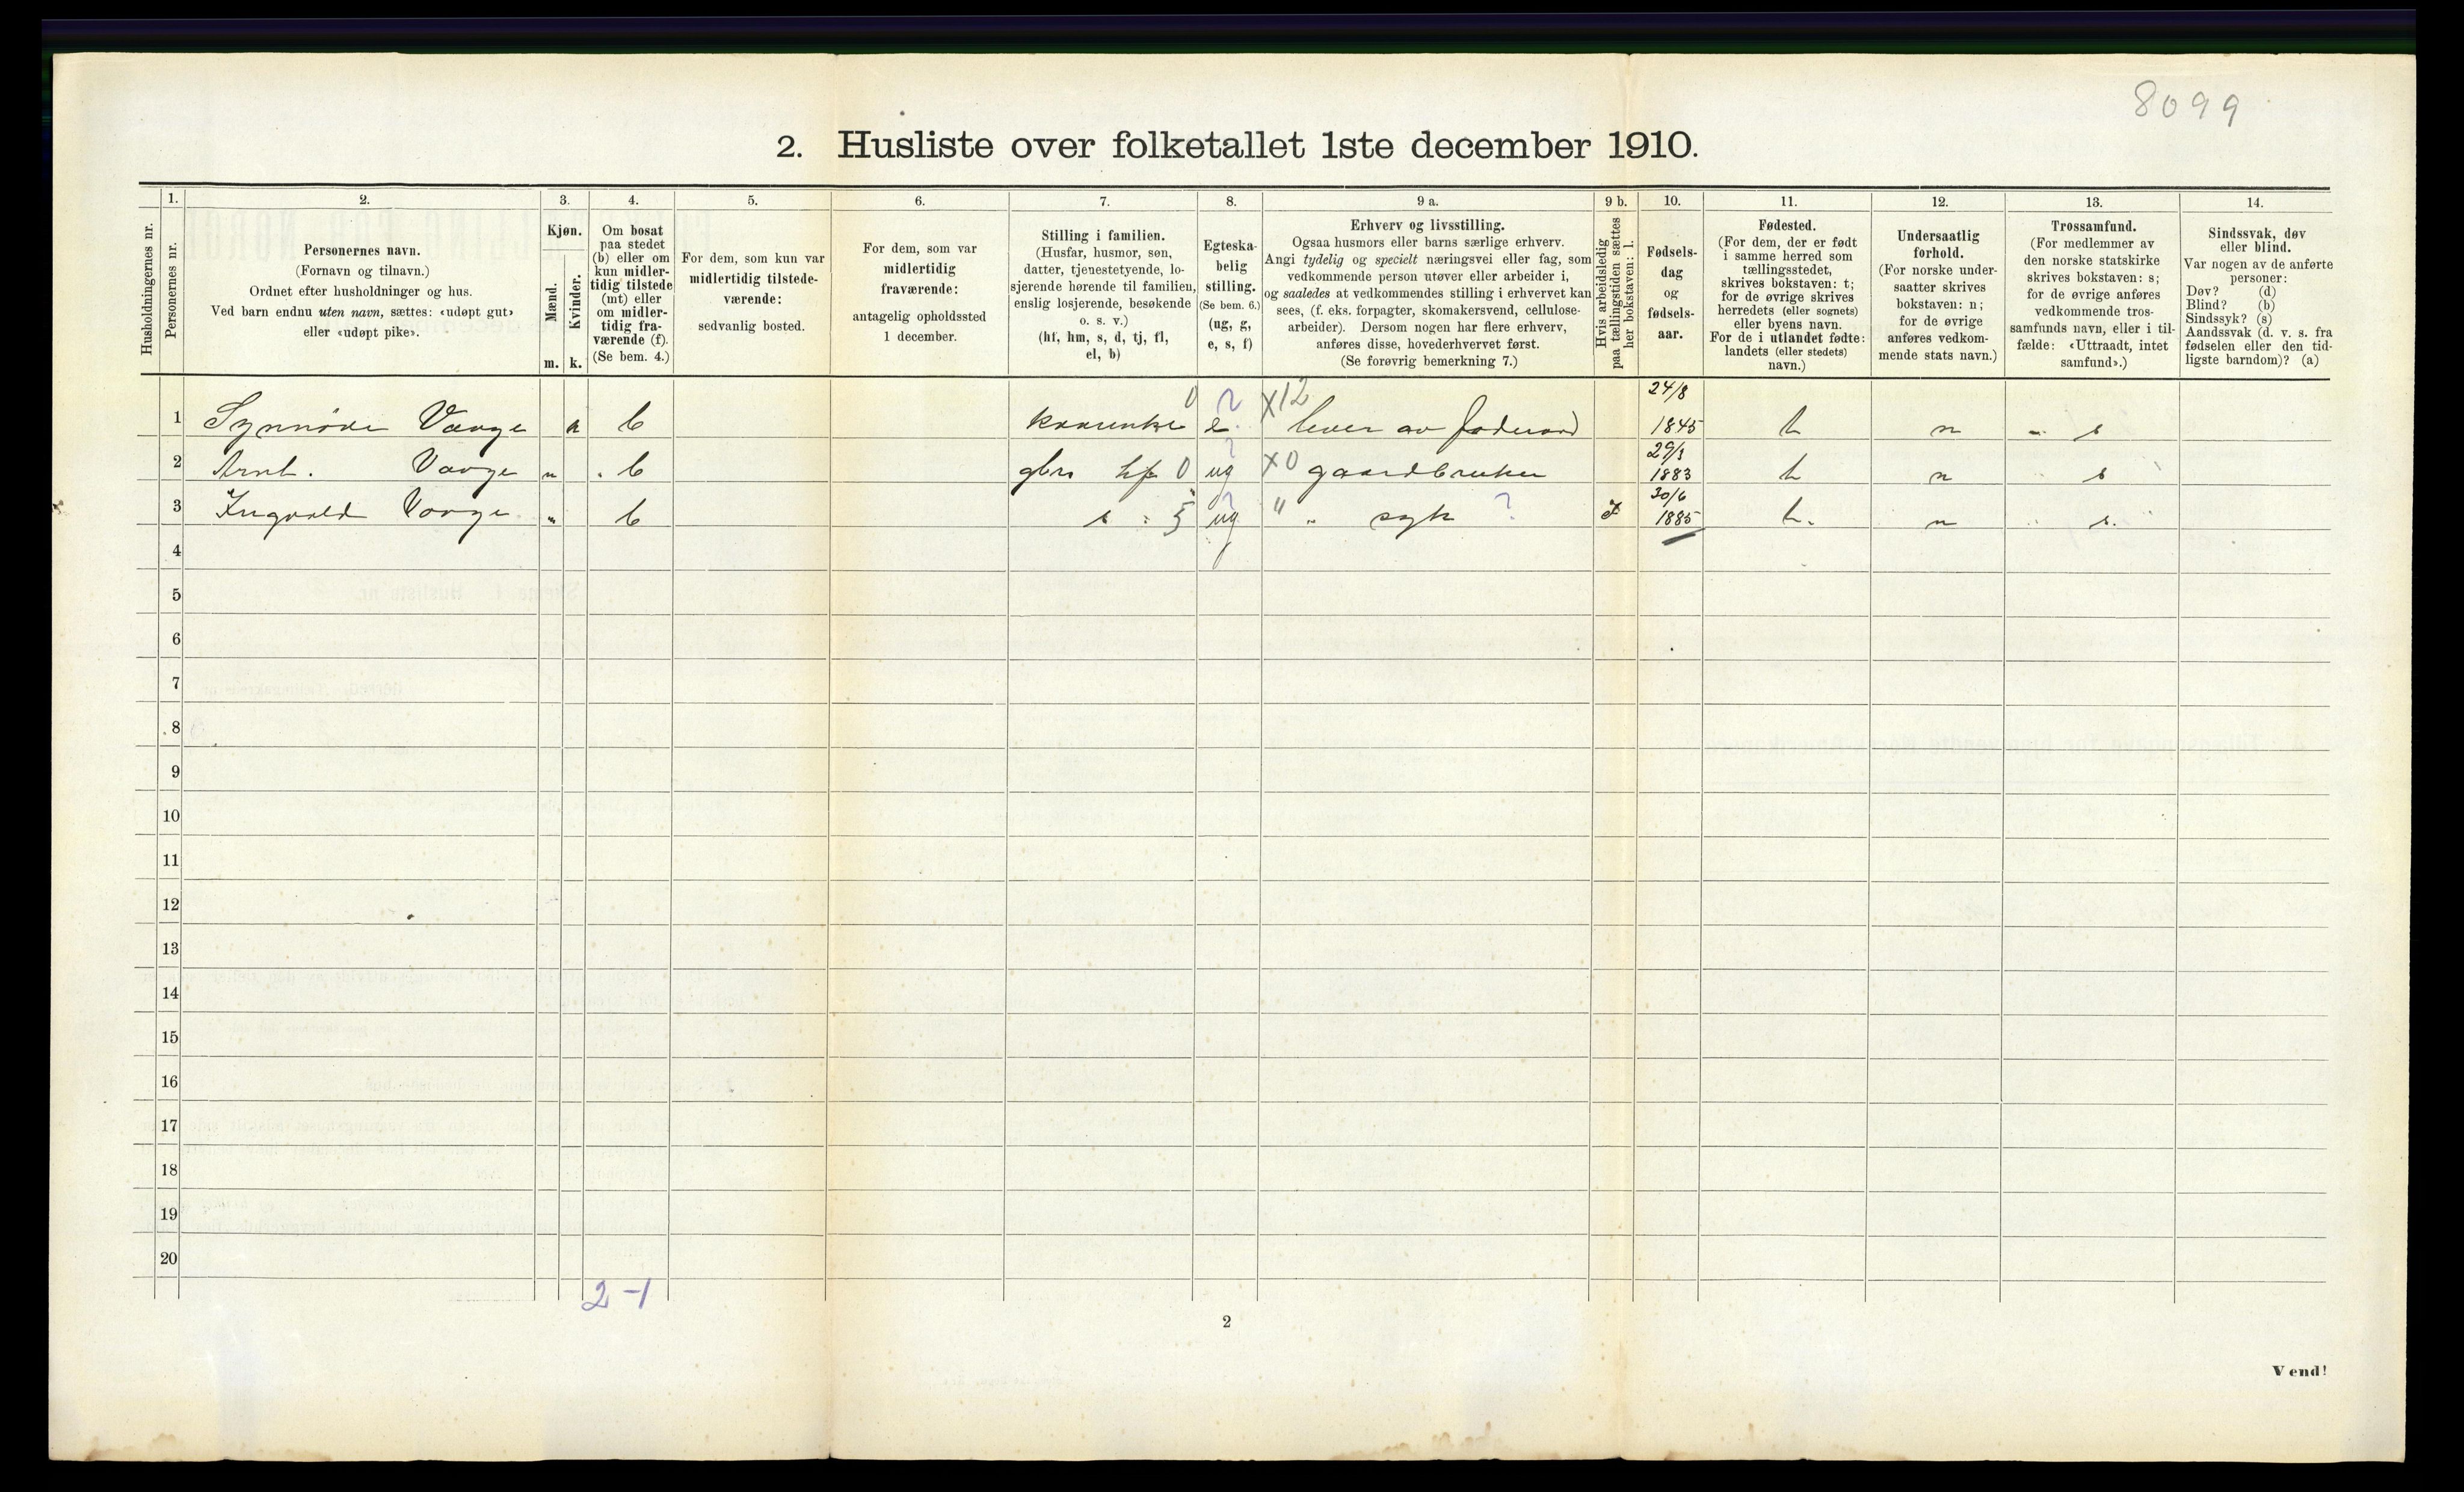 8099
2. Husliste over folketallet 1ste december 1910.
Husholdningernes nr.
1.
Personernes nr.
2.
Personernes navn.
(Fornavn og tilnavn.)
Ordnet efter husholdninger og hus.
Ved barn endnu uten navn, sættes: «udøpt gut»
eller «udøpt pike».
3.
Kjøn.
Mænd.
Kvinder.
m. k.
4.
Om bosat
paa stedet
(b) eller om
kun midler-
tidig tilstede
(mt) eller
om midler-
tidig fra-
værende (f).
(Se bem. 4.)
5.
For dem, som kun var
midlertidig tilstede-
værende:
sedvanlig bosted.
6.
For dem, som var
midlertidig
fraværende:
antagelig opholdssted
1 december.
7.
Stilling i familien.
(Husfar, husmor, søn,
datter, tjenestetyende, lo-
sjerende hørende til familien,
enslig losjerende, besøkende
o. s. v.)
(hf, hm, s, d, tj, fl,
el, b)
8.
Egteska-
belig
stilling.
(Se bem. 6.)
(ug, g,
e, s, f)
9 a.
Erhverv og livsstilling.
Ogsaa husmors eller barns særlige erhverv.
Angi tydelig og specielt næringsvei eller fag, som
vedkommende person utøver eller arbeider i,
og saaledes at vedkommendes stilling i erhvervet kan
sees, (f. eks. forpagter, skomakersvend, cellulose-
arbeider). Dersom nogen har flere erhverv,
anføres disse, hovederhvervet først.
(Se forøvrig bemerkning 7.)
9 b.
Hvis arbeidsledig
paa tællingstiden sættes
her bokstaven: l.
10.
Fødsels-
dag
og
fødsels-
aar.
11.
Fødested.
(For dem, der er født
i samme herred som
tællingsstedet,
skrives bokstaven: t;
for de øvrige skrives
herredets (eller sognets)
eller byens navn.
For de i utlandet fødte:
landets (eller stedets)
navn.)
12.
Undersaatlig
forhold.
(For norske under-
saatter skrives
bokstaven: n;
for de øvrige
anføres vedkom-
mende stats navn.)
13.
Trossamfund.
(For medlemmer av
den norske statskirke
skrives bokstaven: s;
for de øvrige anføres
vedkommende tros-
samfunds navn, eller i til-
fælde: «Uttraadt, intet
samfund».)
14.
Sindssvak, døv
eller blind.
Var nogen av de anførte
personer:
Døv? (d)
Blind? (b)
Sindssyk? (s)
Aandssvak (d. v. s. fra
fødselen eller den tid-
ligste barndom)? (a)
1 Synnöve Vange k b 0 e. X12 lever av foderaad 24/8 1845 t n s
2 Arnt. Vange m b gbr hf 0 ug X0 gaardbruker 1883 t n s
3 Ingvald Vange " b s 5 ug " syk ? 30/6 1885 t. n s.
4
5
6
7
8
9
10
11
12
13
14
15
16
17
18
19
20
2-1
2
Vend!